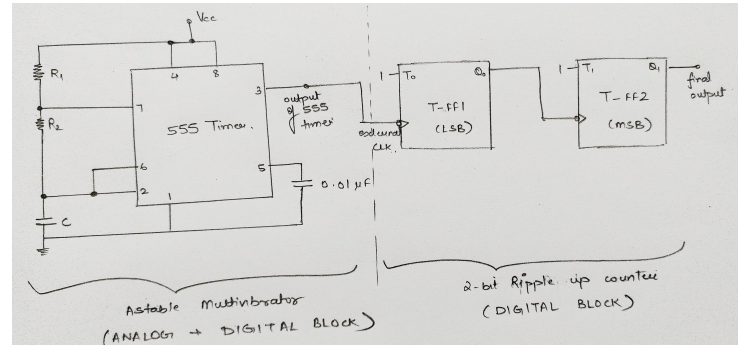 Vcc
R1
R2
C
4
8
7
3
6
2
1
5
555 Timer.
output
of 555
timer
0.01 µF
external
CLK.
1
T0
Q0
T-FF1
(LSB)
1
T1
Q1
T-FF2
(MSB)
final
output
Astable Multivibrator
(ANALOG + DIGITAL BLOCK)
2-bit Ripple up counter
(DIGITAL BLOCK)